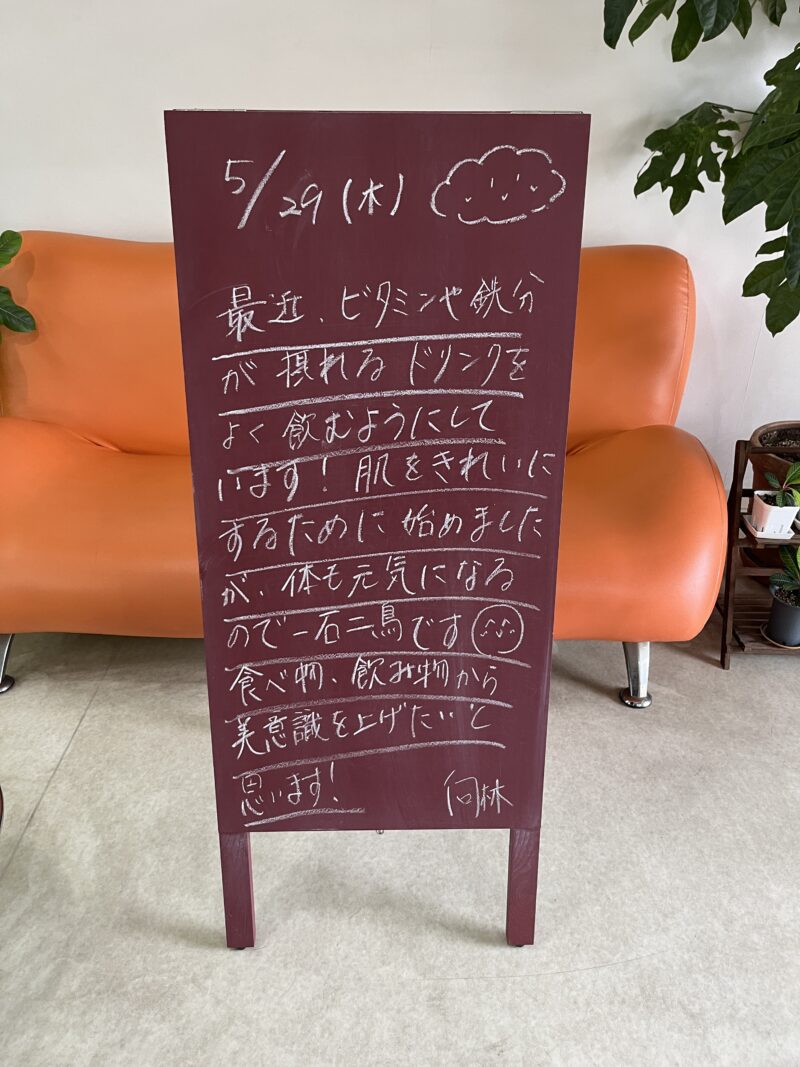 5/29(木)
最近、ビタミンや鉄分
が摂れるドリンクを
よく飲むようにして
います！肌をきれいに
するために始めました
が、体も元気になる
ので一石二鳥です
食べ物、飲み物から
美意識を上げたいと
思います！ 向林